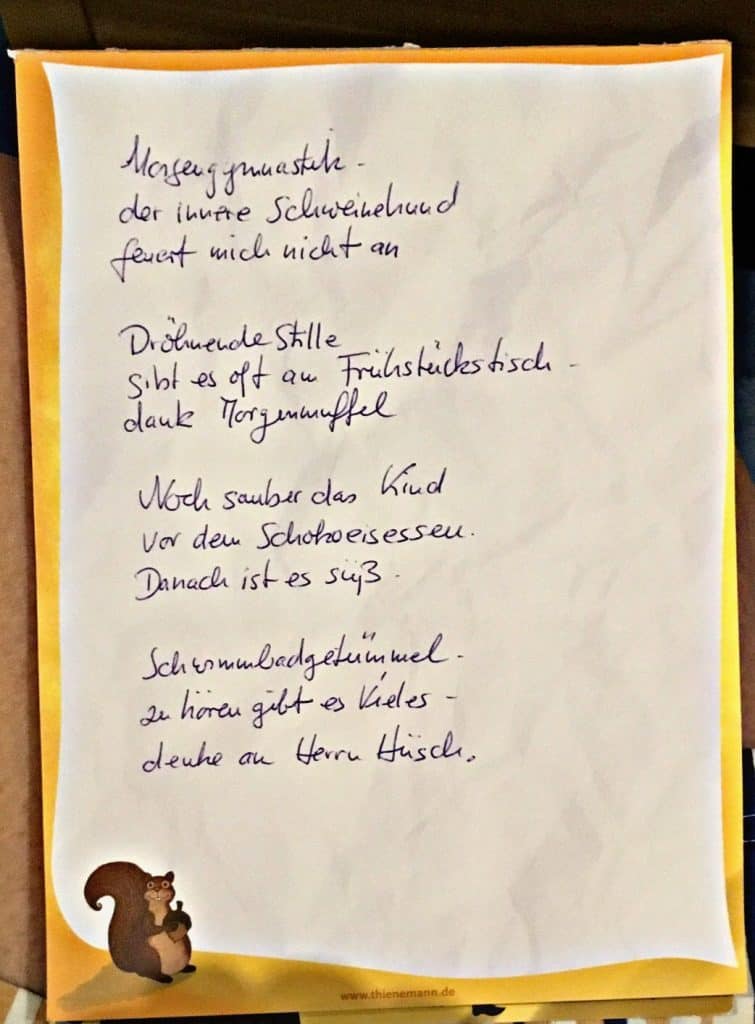 Morgengymnastik -
der innere Schweinehund
feuert mich nicht an
Dröhnende Stille
gibt es oft am Frühstückstisch -
dank Morgenmuffel
Noch sauber das Kind
vor dem Schokoeisessen.
Danach ist es süß.
Schwimmbadgetümmel -
zu hören gibt es Vieles -
denke an Herrn Hüsch.
www.thienemann.de